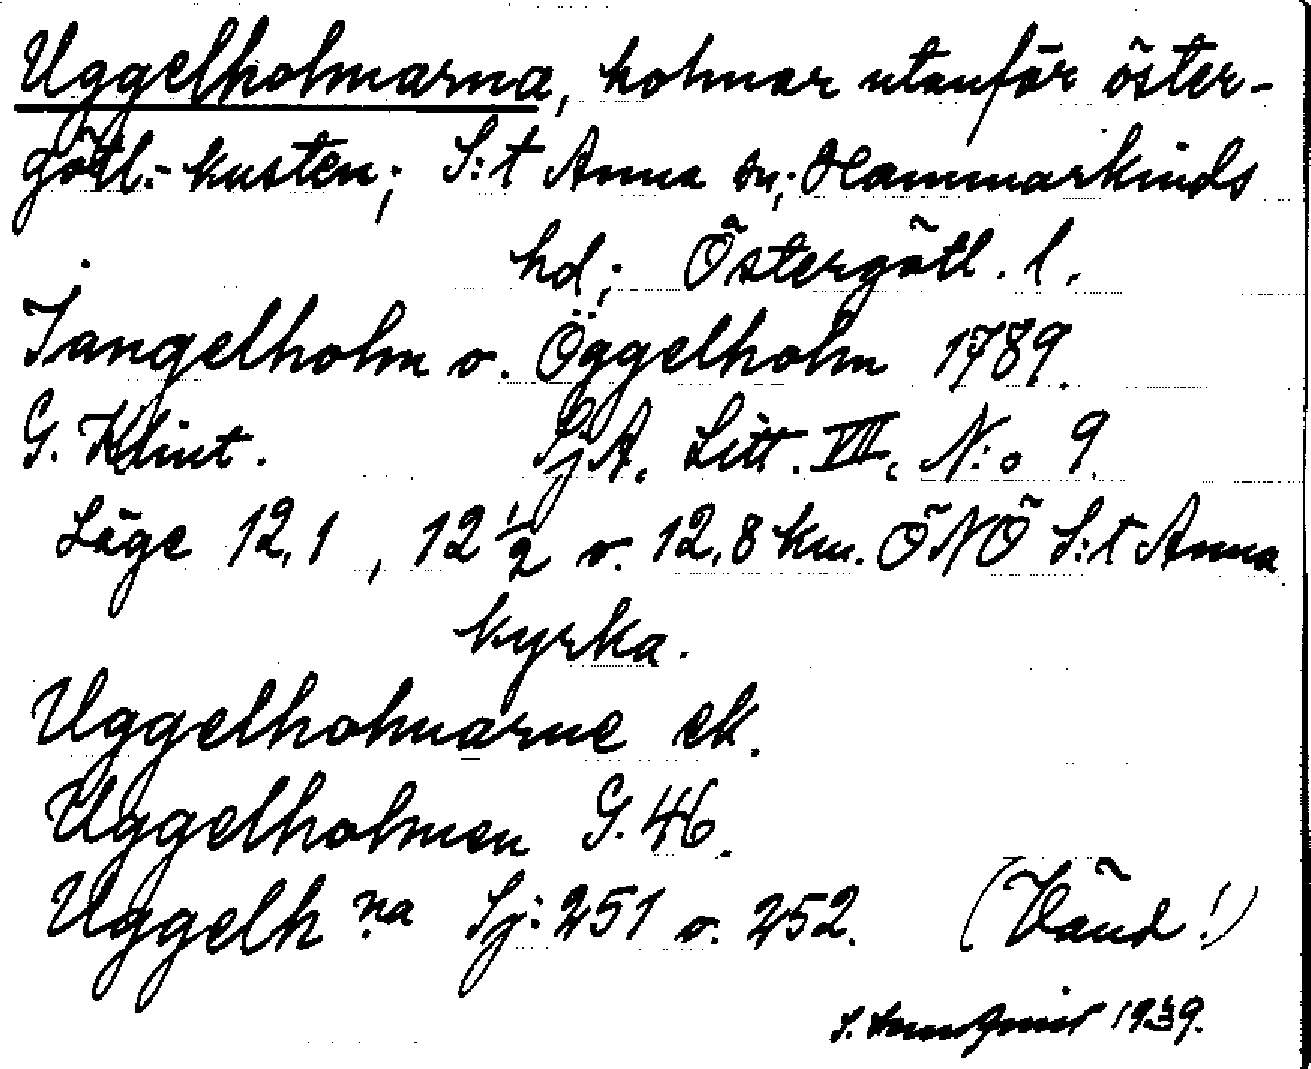 Uggelholmarna, holmar utanför öster-
götl.-kusten; S:t Anna sn; Hammarkinds
hd; Östergötl. l.
Jangelholm o. Öggelholm 1789.
G. Klint. SjA. Litt. VII, N:o 9.
Läge 12,1 , 12 1/2 o. 12,8 km. ÖNÖ S:t Anna
kyrka.
Uggelholmarne ek.
Uggelholmen G. 46.
Uggelh na Sj: 251 o. 252. (Vänd!)
S. 1939.